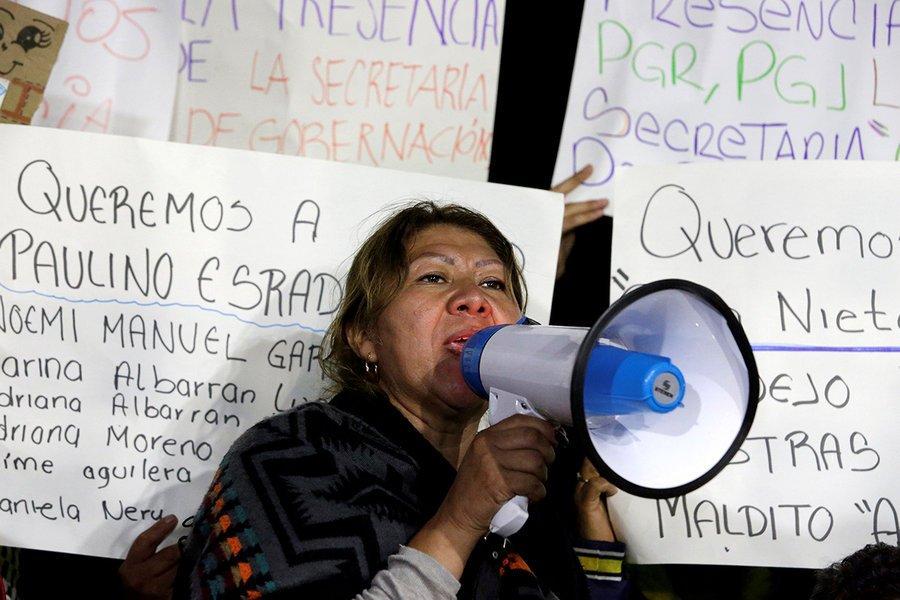 LA PRESENCIA
DE LA SECRETARIA
DE GOBERNACIÓN
PRESENCIA
PGR, PGJ
SECRETARIA
QUEREMOS A
PAULINO ESRAD
NOEMI MANUEL GAR
arina Albarran
driana Albarran
driana Moreno
ime aguilera
aniela Nery
Queremos
Nieto
DEJO
STRAS
MALDITO "A